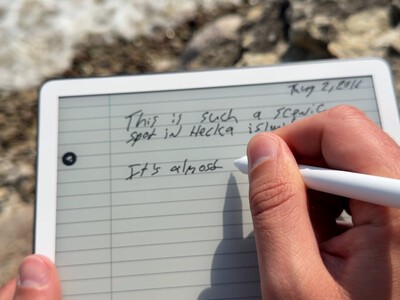 Aug 2,
This is such a scenic
spot in Hecka
It's almost
A